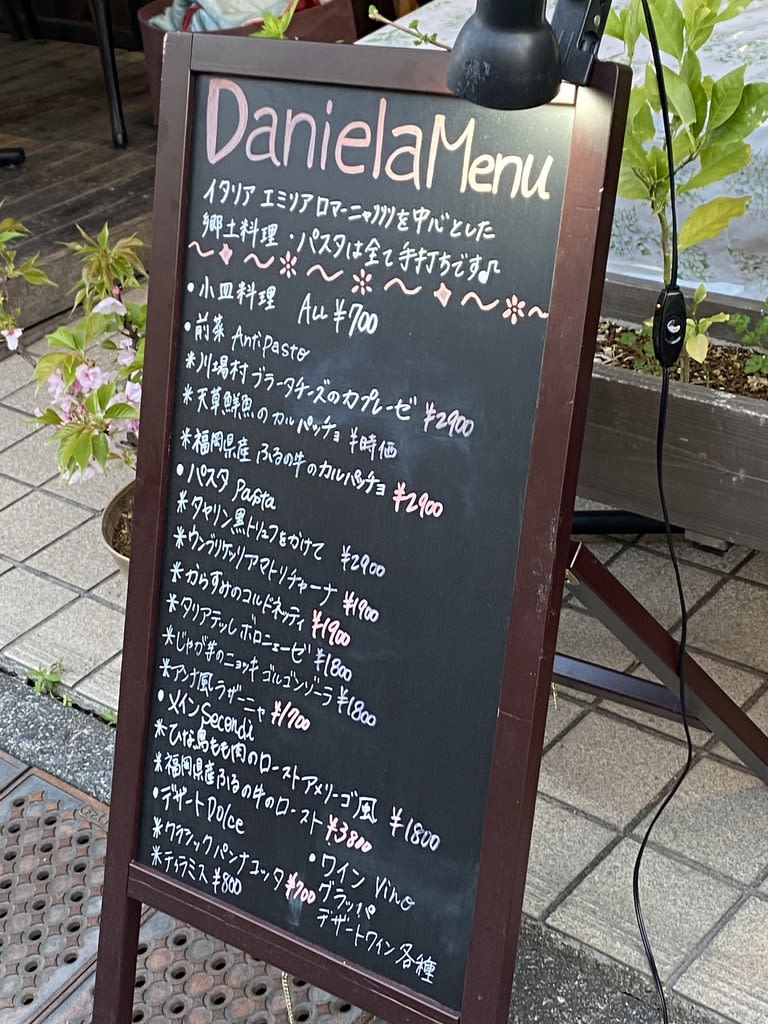 Daniela Menu
イタリア エミリアロマーニャ州を中心とした
郷土料理・パスタは全て手打ちです♪
・小皿料理 ALL ¥700
・前菜 Antipasto
*川場村ブラータチーズのカプレーゼ ¥2900
*天草鮮魚のカルパッチョ ¥時価
*福岡県産 ふるの牛のカルパッチョ ¥2900
・パスタ Pasta
*タヤリン黒トリュフをかけて ¥2900
*ウンブリケッリアマトリチャーナ ¥1900
*からすみのコルドネッティ ¥1900
*タリアテッレ ボロニェーゼ ¥1800
*じゃが芋のニョッキ ゴルゴンゾーラ ¥1800
*アンナ風ラザーニャ ¥1700
・メイン Secondi
*ひな鳥もも肉のローストアメリーゴ風 ¥1800
*福岡県産ふるの牛のロースト ¥3800
・デザート Dolce
*クラシックパンナコッタ ¥700
*ティラミス ¥800
・ワイン Vino
グラッパ
デザートワイン 各種